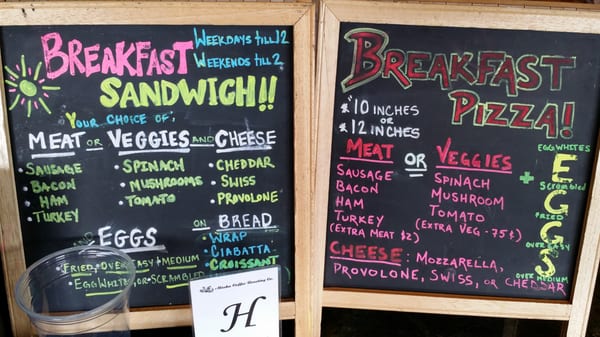 BREAKFAST
WEEKDAYS TILL 12
WEEKENDS TILL 2
SANDWICH!!
YOUR CHOICE OF:
MEAT OR VEGGIES AND CHEESE
• SAUSAGE
• BACON
• HAM
• TURKEY
• SPINACH
• MUSHROOMS
• TOMATO
• CHEDDAR
• SWISS
• PROVOLONE
ON BREAD
• WRAP
• CIABATTA
• CROISSANT
EGGS
• FRIED, OVER EASY + MEDIUM
• EGGWHITES, OR SCRAMBLED
Alaska Coffee Roasting Co.
H
BREAKFAST
PIZZA!
* 10 INCHES
OR
* 12 INCHES
MEAT OR VEGGIES
SAUSAGE
BACON
HAM
TURKEY
(EXTRA MEAT $2)
SPINACH
MUSHROOM
TOMATO
(EXTRA VEG - 75¢)
CHEESE: MOZZARELLA,
PROVOLONE, SWISS, OR CHEDDAR
+
EGGS
EGGWHITES
Scrambled
FRIED
OVER EASY
OVER MEDIUM